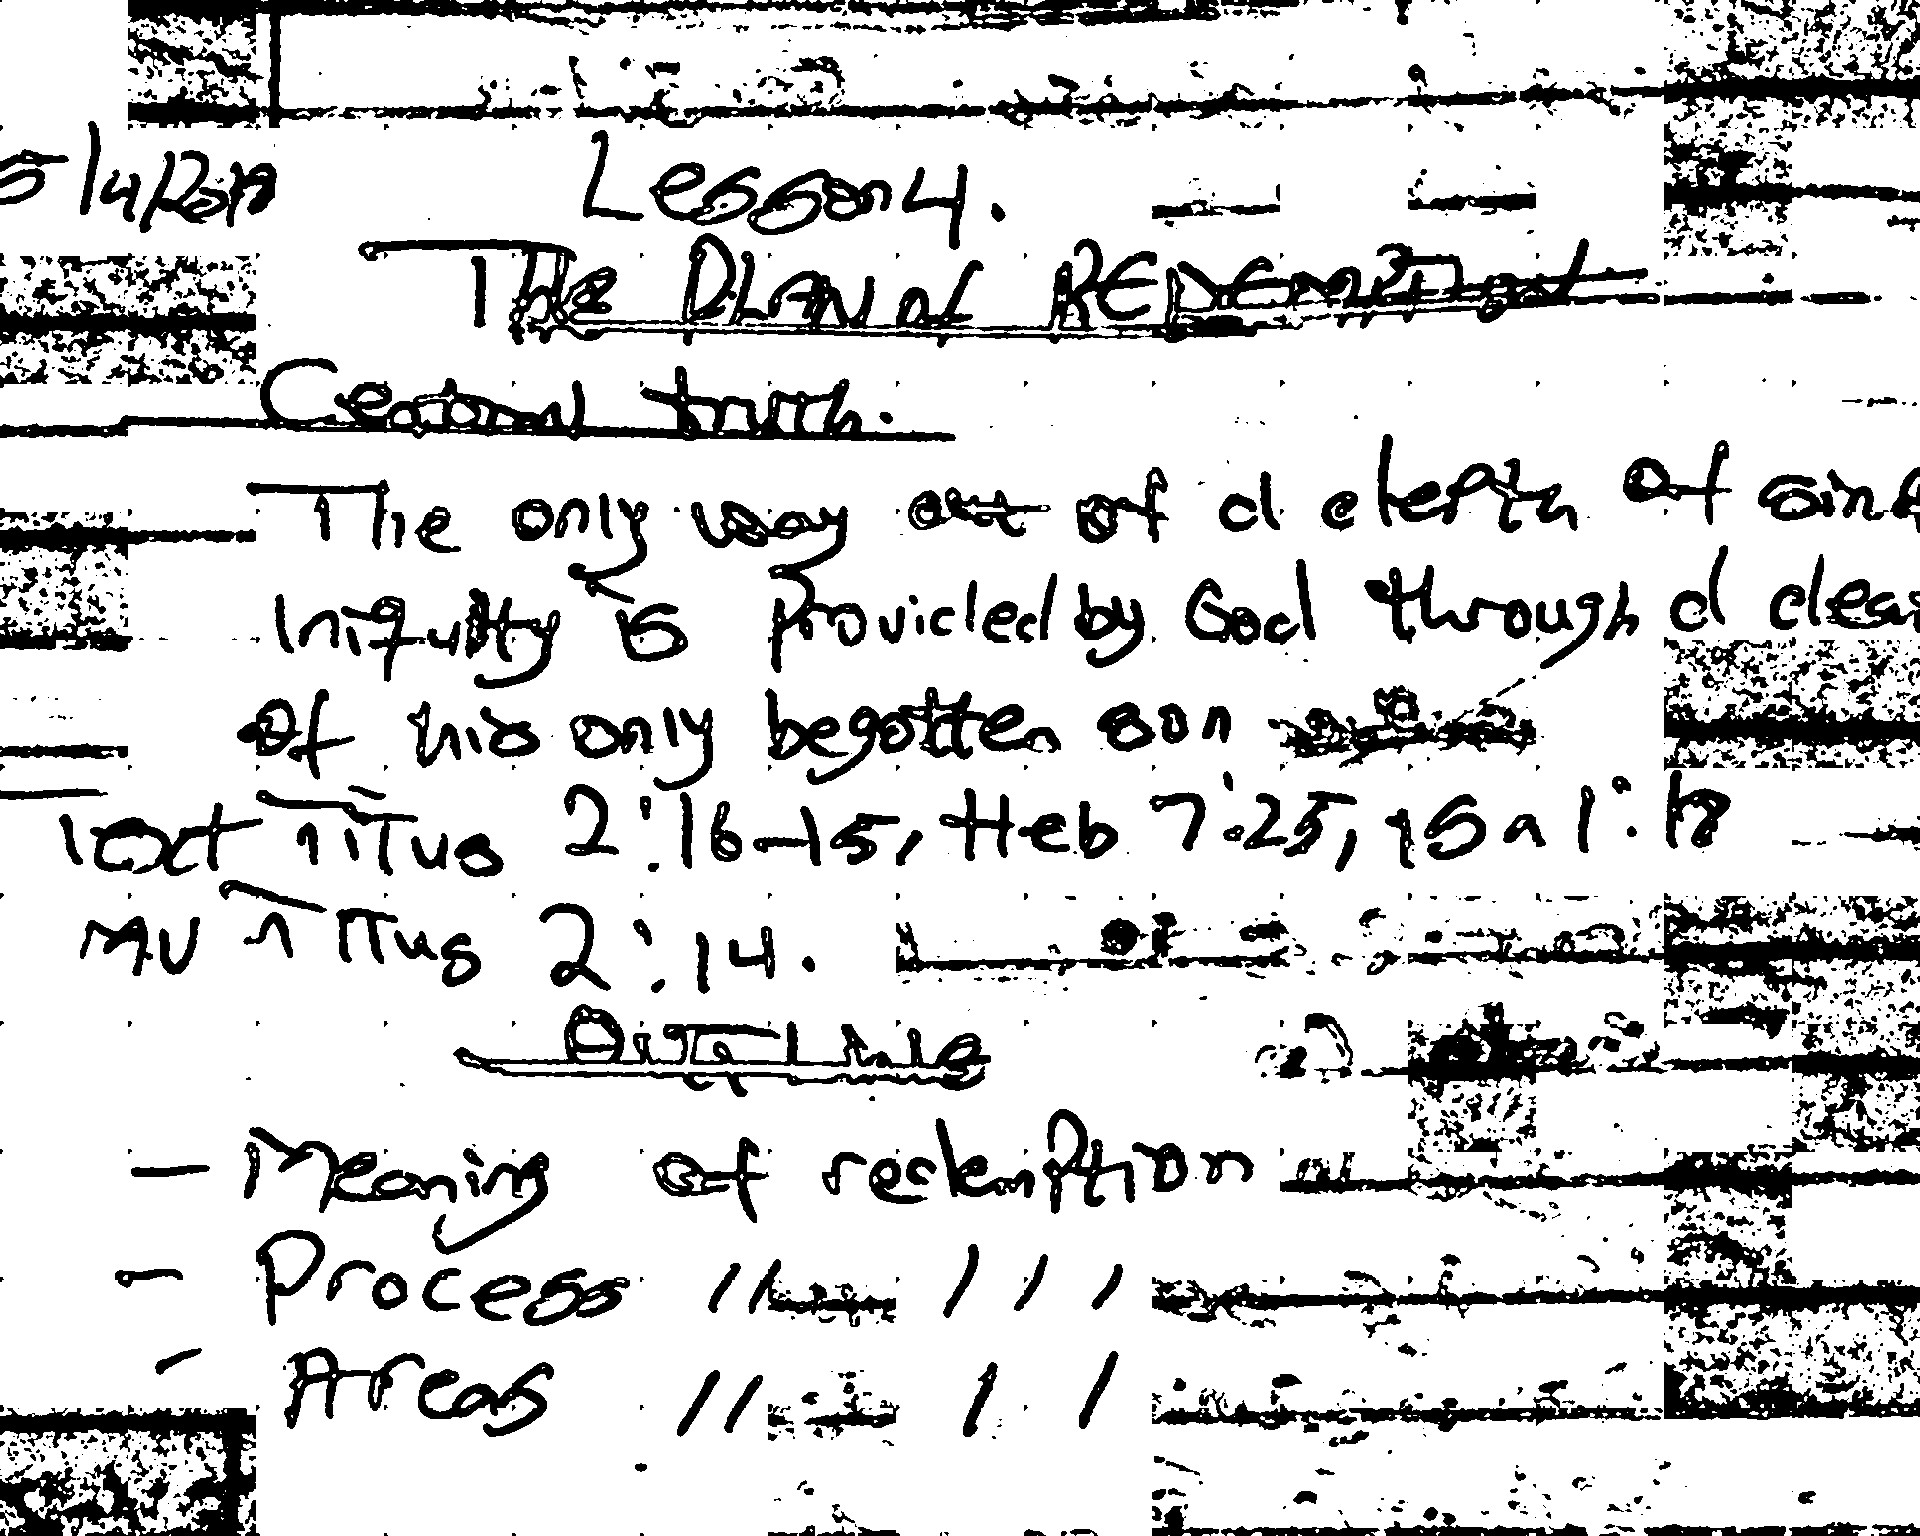 5/4/2019 Lesson 4.
The PLAN of REDEMPTION
Central truth.
The only way out of d depth of sin &
Iniquity is Provided by God through d
of his only begotten son
Text Titus 2:16-15, Heb 7:25, Isa 1:18
MV Titus 2:14.
OUTLINE
- Meaning of redemption
- Process // / / /
- Areas // / /